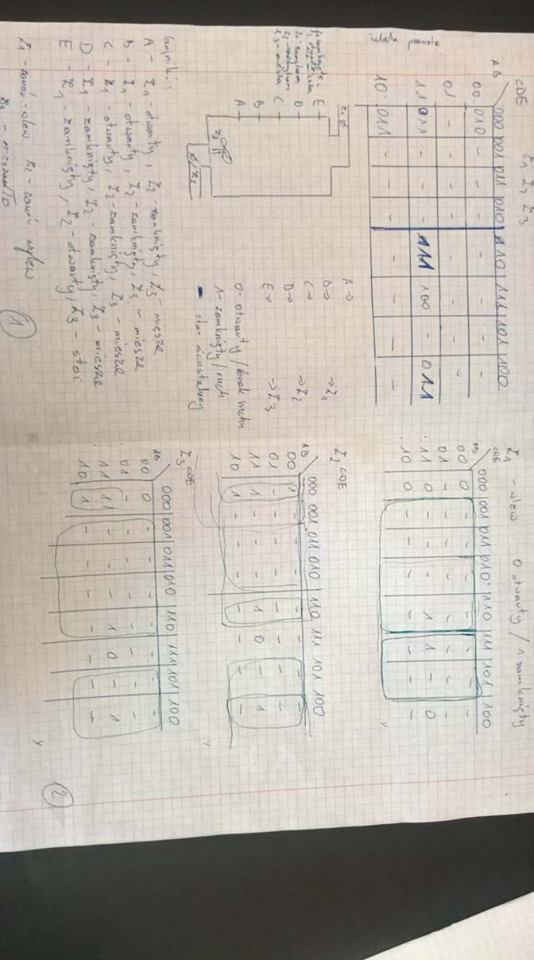 Z1 Z2 Z3
CDE
AB 000 001 011 010 110 111 101 100
00 010 - - - - - - -
01 - - - - - - - -
11 011 - - - 111 100 - 011
10 011 - - - - - - -
tabela prawdy
E
D
C
B
A
A →
B → → Z1
C →
D → → Z2
E → → Z3
0 - otwarty / brak ruchu
1 - zamknięty / ruch
- stan nieustalony
Czujniki:
A - Z1 - otwarty, Z2 - zamknięty, Z3 - miesza
B - Z1 - otwarty, Z2 - zamknięty, Z3 - miesza
C - Z1 - otwarty, Z2 - zamknięty, Z3 - miesza
D - Z1 - zamknięty, Z2 - zamknięty, Z3 - miesza
E - Z1 - zamknięty, Z2 - otwarty, Z3 - stoi
Z1 - zawór wlew Z2 - zawór wylew
Z3 - mieszadło
1
Z1 - wlew 0 otwarty / 1 zamknięty
CDE
AB 000 001 011 010 110 111 101 100
00 0 - - - - - - -
01 - - - - - - - -
11 0 - - - 1 1 - 0
10 0 - - - - - - -
Z2 CDE
AB 000 001 011 010 110 111 101 100
00 1 - - - - - - -
01 - - - - - - - -
11 1 - - - 1 0 - 1
10 1 - - - - - - -
Z3 CDE
AB 000 001 011 010 110 111 101 100
00 0 - - - - - - -
01 - - - - - - - -
11 1 - - - 1 0 - 1
10 1 - - - - - - -
2